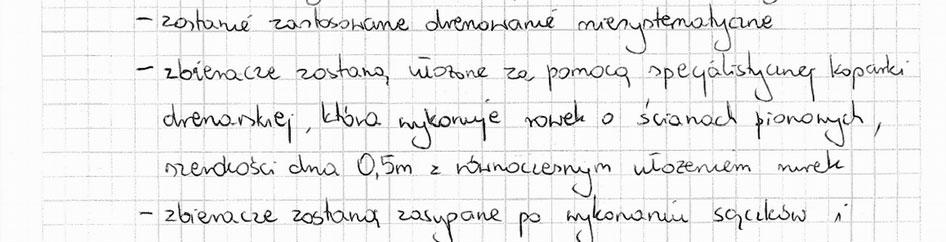 - zostanie zastosowane drenowanie niesystematyczne
- zbieracze zostaną ułożone za pomocą specjalistycznej koparki
drenarskiej, która wykonuje rowek o ścianach pionowych,
szerokości dna 0,5m z równoczesnym ułożeniem rurek
- zbieracze zostaną zasypane po wykonaniu sączków i